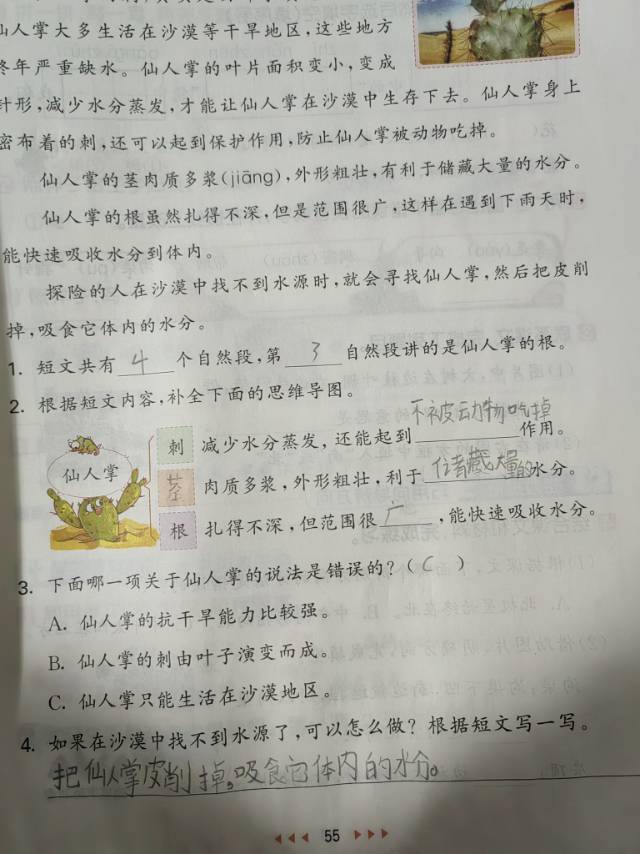 仙人掌大多生活在沙漠等干旱地区，这些地方
终年严重缺水。仙人掌的叶片面积变小，变成
针形，减少水分蒸发，才能让仙人掌在沙漠中生存下去。仙人掌身上
密布着的刺，还可以起到保护作用，防止仙人掌被动物吃掉。
仙人掌的茎肉质多浆(jiāng)，外形粗壮，有利于储藏大量的水分。
仙人掌的根虽然扎得不深，但是范围很广，这样在遇到下雨天时，
能快速吸收水分到体内。
探险的人在沙漠中找不到水源时，就会寻找仙人掌，然后把皮削
掉，吸食它体内的水分。
1. 短文共有 4 个自然段，第 3 自然段讲的是仙人掌的根。
2. 根据短文内容，补全下面的思维导图。
仙人掌
刺 减少水分蒸发，还能起到不被动物吃掉作用。
茎 肉质多浆，外形粗壮，利于储藏大量的水分。
根 扎得不深，但范围很广，能快速吸收水分。
3. 下面哪一项关于仙人掌的说法是错误的？( C )
A. 仙人掌的抗干旱能力比较强。
B. 仙人掌的刺由叶子演变而成。
C. 仙人掌只能生活在沙漠地区。
4. 如果在沙漠中找不到水源了，可以怎么做？根据短文写一写。
把仙人掌皮削掉，吸食它体内的水分。
55